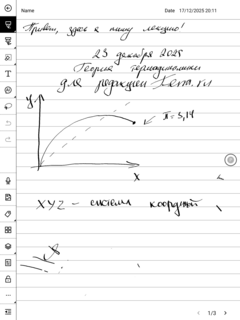 Name Date 17/12/2025 20:11
Привет, здесь я пишу лекцию!
23 декабря 2025
Теория термодинамики
для редакции
y
π=3,14
x
XYZ - система координат
1/3